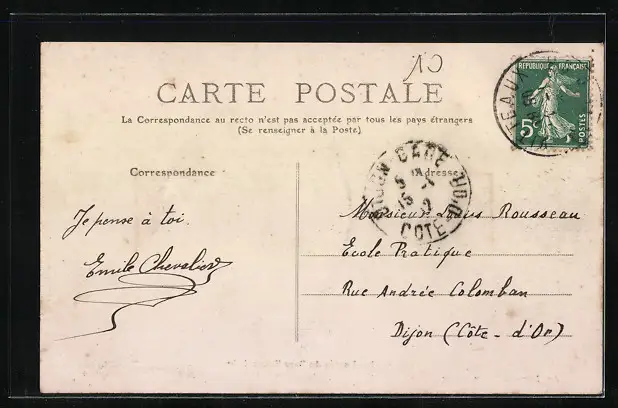 10
CARTE POSTALE
La Correspondance au recto n'est pas acceptée par tous les pays étrangers
(Se renseigner à la Poste)
RÉPUBLIQUE FRANÇAISE
5c
POSTES
Correspondance
Adresse
DIJON GARE
COTE D'OR
Je pense à toi.
Emile Chevalier
Monsieur Louis Rousseau
Ecole Pratique
Rue Andrée Colomban
Dijon (Côte-d'Or)